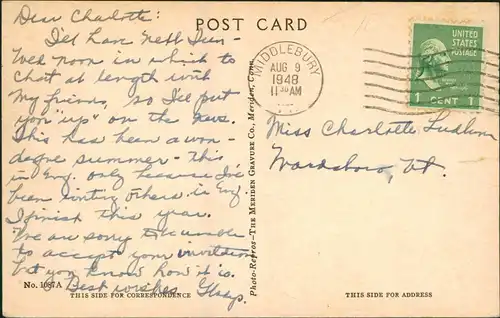 Dear Charlotte:
I'll have
room in which to
chat at length with
my friends, so I'll put
you "up" on the news.
This has been a won-
summer - this
in Eng. only because I've
been others in Eng.
I finish this year.
We are sorry to be unable
to accept your invitation
but you know how it is.
Best wishes
No. 1087A
THIS SIDE FOR CORRESPONDENCE
POST CARD
Photo-Repros-THE MERIDEN GRAVURE CO., Meriden, Conn.
MIDDLEBURY
AUG 9
1948
11 30 AM
VT.
UNITED STATES
POSTAGE
1 CENT 1
Miss Charlotte
Wardsboro, Vt.
THIS SIDE FOR ADDRESS